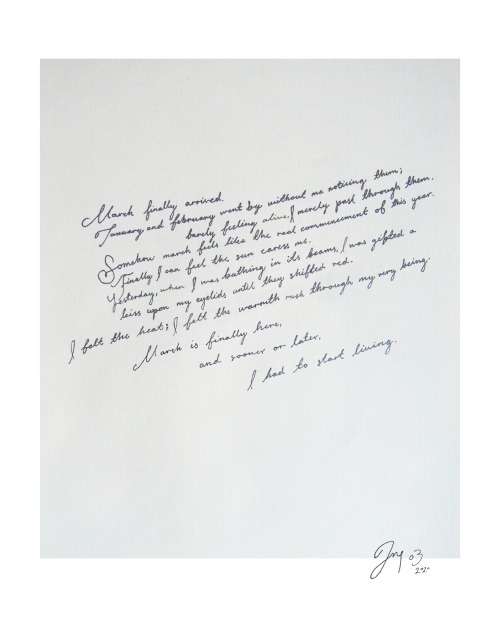 March finally arrived.
January and february went by without me noticing them;
barely feeling alive, I merely past through them.
Somehow march feels like the real commencement of this year.
Finally I can feel the sun caress me.
Yesterday, when I was bathing in its beams, I was gifted a
kiss upon my eyelids until they shifted red.
I felt the heat; I felt the warmth rush through my very being.
March is finally here,
and sooner or later,
I had to start living.
03
2020